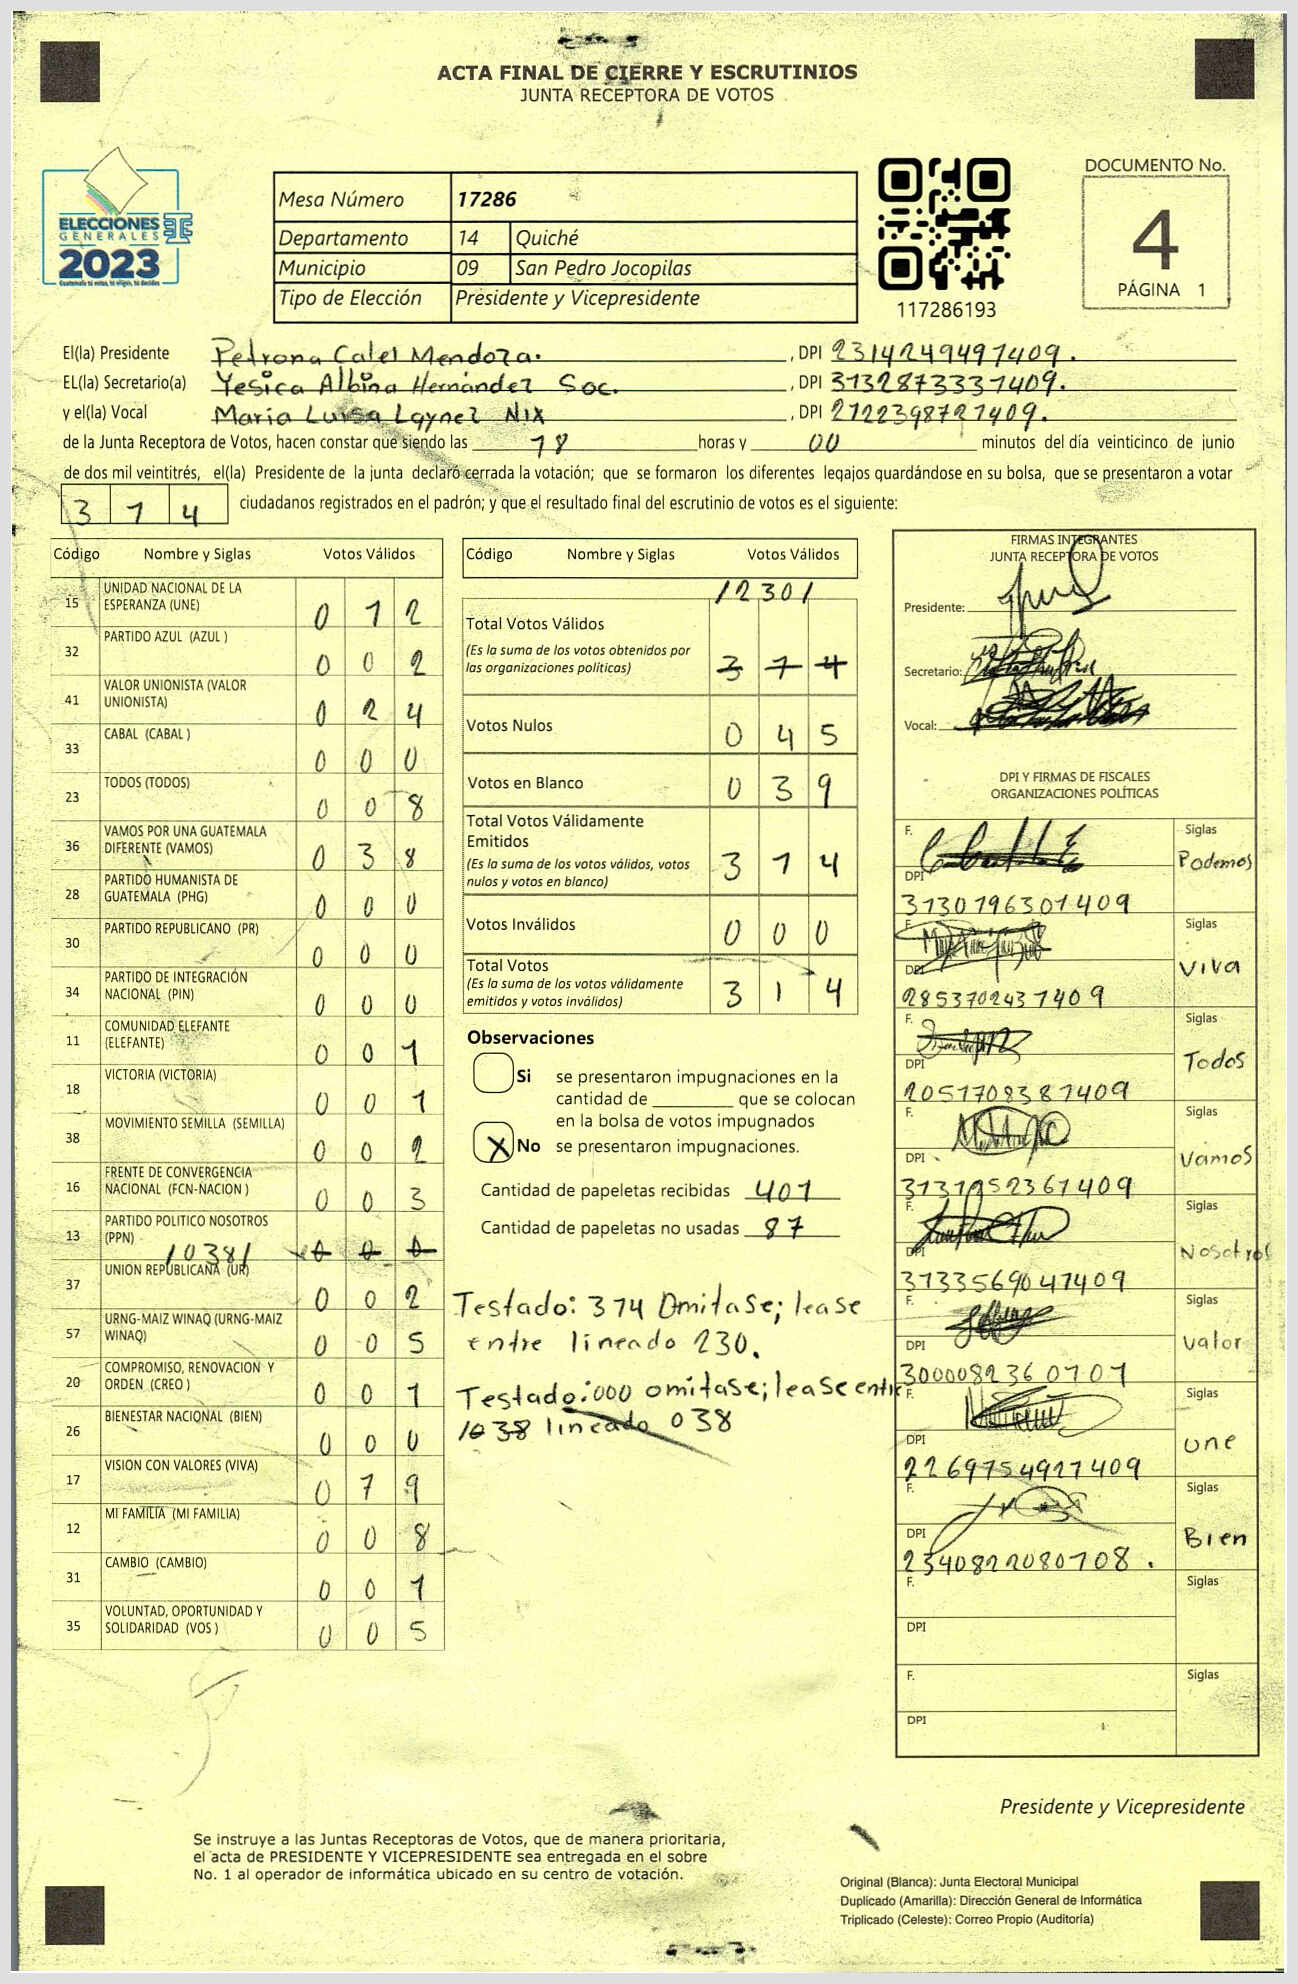 ACTA FINAL DE CIERRE Y ESCRUTINIOS
JUNTA RECEPTORA DE VOTOS
ELECCIONES
GENERALES
2023
TSE
Mesa Número 17286
Departamento 14 Quiché
Municipio 09 San Pedro Jocopilas
Tipo de Elección Presidente y Vicepresidente
117286193
DOCUMENTO No.
4
PÁGINA 1
El(la) Presidente Petrona Calel Mendoza. , DPI 2314249497409.
EL(la) Secretario(a) Yesica Albina Hernández Soc. , DPI 3132873331409.
y el(la) Vocal Maria Luisa Laynez Nix , DPI 2122398721409.
de la Junta Receptora de Votos, hacen constar que siendo las 18 horas y 00 minutos del día veinticinco de junio
de dos mil veintitrés, el(la) Presidente de la junta declaró cerrada la votación; que se formaron los diferentes legajos guardándose en su bolsa, que se presentaron a votar
314 ciudadanos registrados en el padrón; y que el resultado final del escrutinio de votos es el siguiente:
Código Nombre y Siglas Votos Válidos
15 UNIDAD NACIONAL DE LA ESPERANZA (UNE) 0 1 2
32 PARTIDO AZUL (AZUL ) 0 0 2
41 VALOR UNIONISTA (VALOR UNIONISTA) 0 2 4
33 CABAL (CABAL ) 0 0 0
23 TODOS (TODOS) 0 0 8
36 VAMOS POR UNA GUATEMALA DIFERENTE (VAMOS) 0 3 8
28 PARTIDO HUMANISTA DE GUATEMALA (PHG) 0 0 0
30 PARTIDO REPUBLICANO (PR) 0 0 0
34 PARTIDO DE INTEGRACIÓN NACIONAL (PIN) 0 0 0
11 COMUNIDAD ELEFANTE (ELEFANTE) 0 0 1
18 VICTORIA (VICTORIA) 0 0 1
38 MOVIMIENTO SEMILLA (SEMILLA) 0 0 2
16 FRENTE DE CONVERGENCIA NACIONAL (FCN-NACION ) 0 0 3
13 PARTIDO POLITICO NOSOTROS (PPN) /038/ 0 0 0
37 UNION REPUBLICANA (UR) 0 0 2
57 URNG-MAIZ WINAQ (URNG-MAIZ WINAQ) 0 0 5
20 COMPROMISO, RENOVACION Y ORDEN (CREO ) 0 0 1
26 BIENESTAR NACIONAL (BIEN) 0 0 0
17 VISION CON VALORES (VIVA) 0 7 9
12 MI FAMILIA (MI FAMILIA) 0 0 8
31 CAMBIO (CAMBIO) 0 0 1
35 VOLUNTAD, OPORTUNIDAD Y SOLIDARIDAD (VOS ) 0 0 5
Código Nombre y Siglas Votos Válidos
/230/
Total Votos Válidos 3 1 4
(Es la suma de los votos obtenidos por
las organizaciones políticas)
Votos Nulos 0 4 5
Votos en Blanco 0 3 9
Total Votos Válidamente
Emitidos 3 1 4
(Es la suma de los votos válidos, votos
nulos y votos en blanco)
Votos Inválidos 0 0 0
Total Votos 3 1 4
(Es la suma de los votos válidamente
emitidos y votos inválidos)
Observaciones
Si se presentaron impugnaciones en la
cantidad de ________ que se colocan
en la bolsa de votos impugnados
X No se presentaron impugnaciones.
Cantidad de papeletas recibidas 401
Cantidad de papeletas no usadas 87
Testado: 314 Omitase; lease
entre lineado 230.
Testado: 000 omitase; lease entre
lineado 038
FIRMAS INTEGRANTES
JUNTA RECEPTORA DE VOTOS
Presidente:
Secretario:
Vocal:
DPI Y FIRMAS DE FISCALES
ORGANIZACIONES POLÍTICAS
F. Siglas
Podemos
DPI
3130196301409
F. Siglas
Viva
DPI
2853702431409
F. Siglas
Todos
DPI
2051708381409
F. Siglas
Vamos
DPI
3131952361409
F. Siglas
Nosotros
DPI
3133569041409
F. Siglas
Valor
DPI
3000082360101
F. Siglas
une
DPI
2269754921409
F. Siglas
Bien
DPI
2340822080108.
F. Siglas
DPI
F. Siglas
DPI
Presidente y Vicepresidente
Se instruye a las Juntas Receptoras de Votos, que de manera prioritaria,
el acta de PRESIDENTE Y VICEPRESIDENTE sea entregada en el sobre
No. 1 al operador de informática ubicado en su centro de votación.
Original (Blanca): Junta Electoral Municipal
Duplicado (Amarilla): Dirección General de Informática
Triplicado (Celeste): Correo Propio (Auditoría)